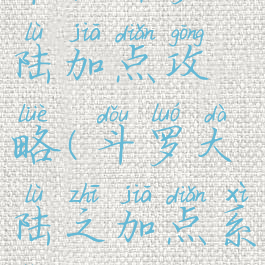 lù jiā diǎn gōng
陆加点攻
lüè dǒu luó dà
略(斗罗大
lù zhī jiā diǎn xì
陆之加点系